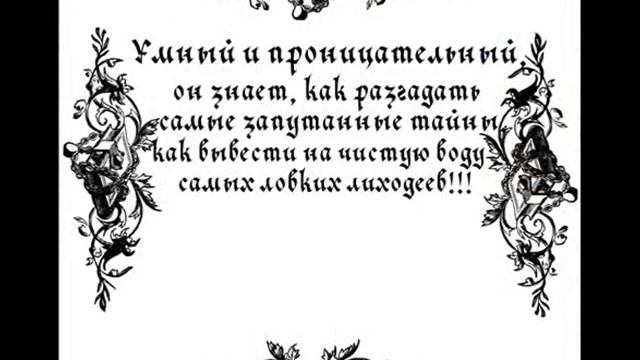 Умный и проницательный,
он знает, как разгадать
самые запутанные тайны
как вывести на чистую воду
самых ловких лиходеев!!!